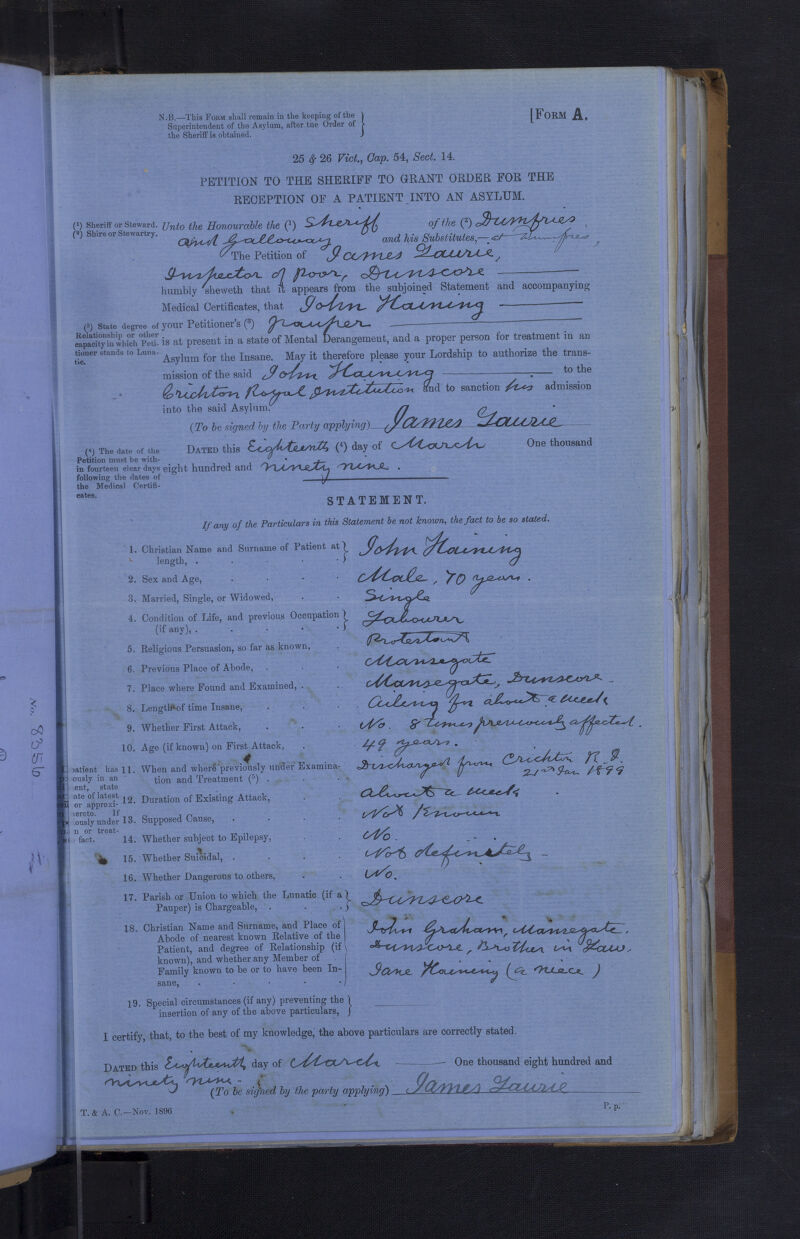 N.B.—This Form shall remain in the keeping of the
Superintendent of the Asylum, after the Order of
the Sheriff is obtained.
[Form A.
25 & 26 Vict., Cap. 54, Sect. 14.
PETITION TO THE SHERIFF TO GRANT ORDER FOR THE
RECEPTION OF A PATIENT INTO AN ASYLUM.
(¹) Sheriff or Steward.
(²) Shire or Stewartry.
Unto the Honourable the (¹) Sheriff of the (²) Dumfries
and Galloway and his Substitutes,
The Petition of James Laurie,
Inspector of Poor, Dunscore
humbly sheweth that it appears from the subjoined Statement and accompanying
Medical Certificates, that John Haining
(³) State degree of
Relationship or other
capacity in which Peti-
tioner stands to Luna-
tic.
your Petitioner's (³) pauper
is at present in a state of Mental Derangement, and a proper person for treatment in an
Asylum for the Insane. May it therefore please your Lordship to authorize the trans-
mission of the said John Haining to the
Crichton Royal Institution and to sanction his admission
into the said Asylum.
(To be signed by the Party applying) James Laurie
(⁴) The date of the
Petition must be with-
in fourteen clear days
following the dates of
the Medical Certifi-
cates.
Dated this Eighteenth (⁴) day of March One thousand
eight hundred and ninety nine.
STATEMENT.
If any of the Particulars in this Statement be not known, the fact to be so stated.
1. Christian Name and Surname of Patient at
length, . John Haining
2. Sex and Age, Male, 70 years.
3. Married, Single, or Widowed, Single
4. Condition of Life, and previous Occupation
(if any), . Labourer
5. Religious Persuasion, so far as known, Protestant
6. Previous Place of Abode, . Mansegate
7. Place where Found and Examined, . Mansegate, Dunscore
8. Length of time Insane, Ailing for about a week
9. Whether First Attack, No. 8 times previously affected.
10. Age (if known) on First Attack, 49 years.
patient has
ously in an
ent, state
ate of latest
or approxi-
hereto. If
ously under
n or treat-
fact.
11. When and where previously under Examina-
tion and Treatment (⁵) . Discharged from Crichton R.I.
21st Jan 1899
12. Duration of Existing Attack, About a week
13. Supposed Cause, Not Known
14. Whether subject to Epilepsy, No
15. Whether Suicidal, . Not definitely
16. Whether Dangerous to others, No.
17. Parish or Union to which the Lunatic (if a
Pauper) is Chargeable, . Dunscore
18. Christian Name and Surname, and Place of
Abode of nearest known Relative of the
Patient, and degree of Relationship (if
known), and whether any Member of
Family known to be or to have been In-
sane, John Graham, Mansegate,
Dunscore, Brother in Law.
Jane Haining (a niece)
19. Special circumstances (if any) preventing the
insertion of any of the above particulars,
I certify, that, to the best of my knowledge, the above particulars are correctly stated.
Dated this Eighteenth day of March One thousand eight hundred and
ninety nine.
(To be signed by the party applying) James Laurie
T. & A. C.—Nov. 1896
P. p.
No 8356